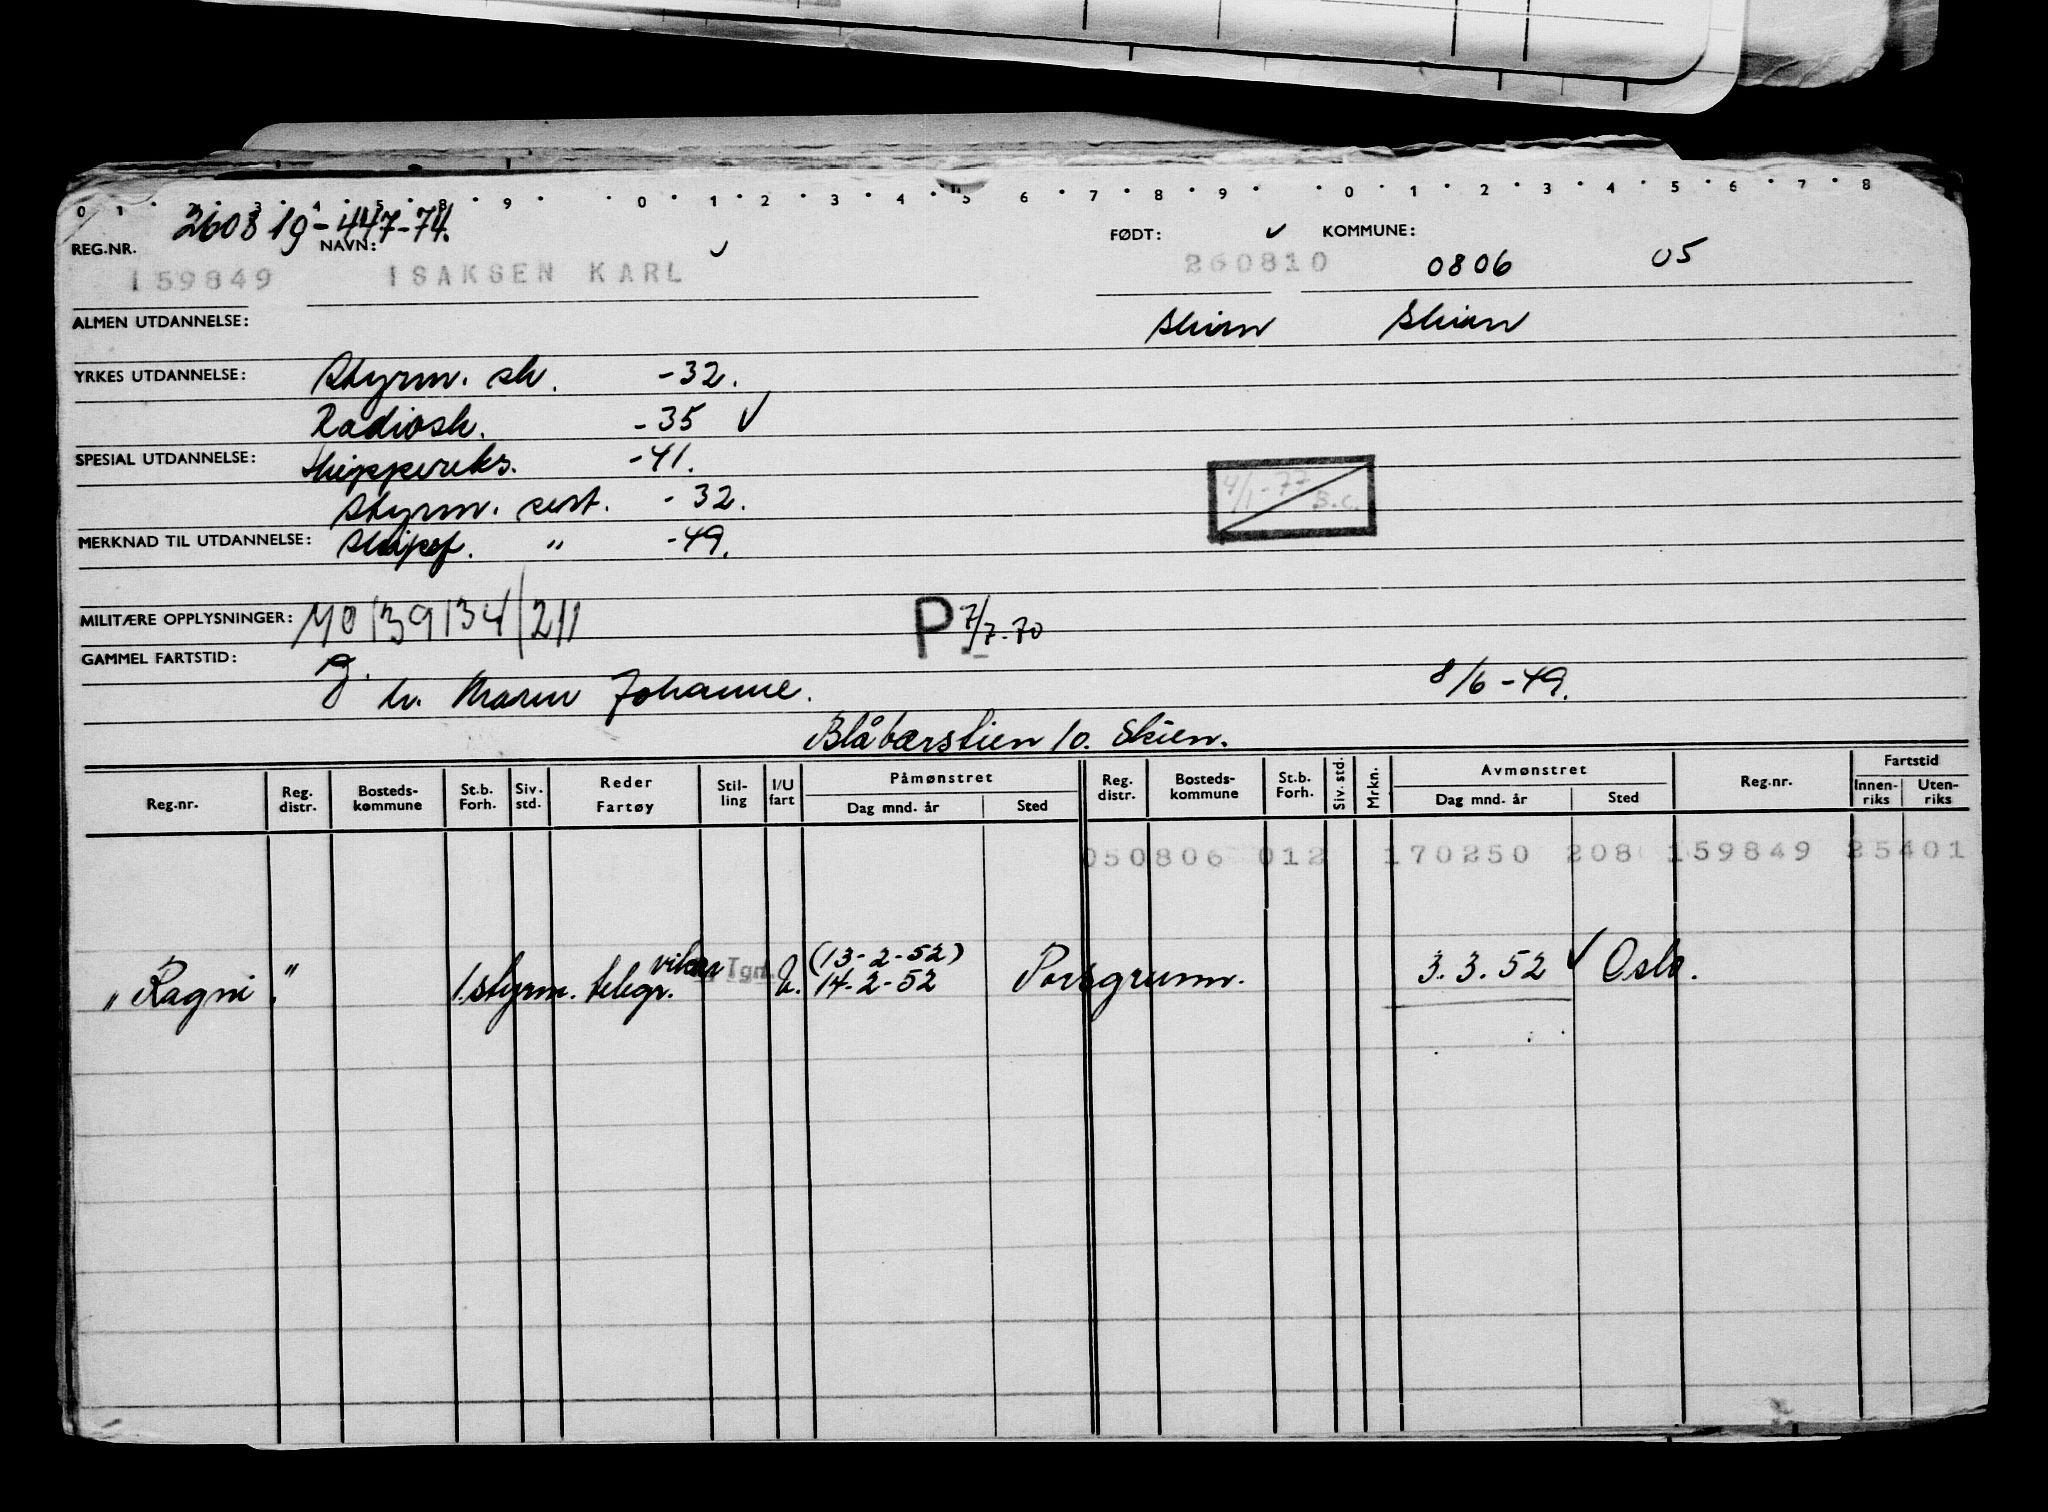 0 1 2 3 4 5 8 9 0 1 2 3 4 5 6 7 8 9 0 1 2 3 4 5 6 7 8
260819-447-74.
REG.NR. NAVN: FØDT: KOMMUNE:
159849 ISAKSEN KARL 260810 0806 05
ALMEN UTDANNELSE: Skien Skien
YRKES UTDANNELSE: Styrm. sk. -32.
Radiosk. -35
SPESIAL UTDANNELSE: Skippereks. -41.
Styrm. sert. -32.
4/1-77 B.C.
MERKNAD TIL UTDANNELSE: Skipsf. " -49.
MILITÆRE OPPLYSNINGER: 40/39/34/2/1 P 7/7-70
GAMMEL FARTSTID:
G. h. Maren Johanne. 8/6-49.
Blåbærstien 10. Skien.
Reg.nr. Reg. distr. Bosteds-kommune St.b. Forh. Siv. std. Reder Fartøy Stil-ling I/U fart Påmønstret Dag mnd. år Sted Reg. distr. Bosteds-kommune St.b. Forh. Siv. std. Mrkn. Avmønstret Dag mnd. år Sted Reg.nr. Fartstid Innen-riks Uten-riks
050806 012 170250 208 159849 25401
vikar (13-2-52)
"Ragni." 1.styrm. telegr. Tgrf. U. 14-2-52 Porsgrunn. 3.3.52 Oslo.